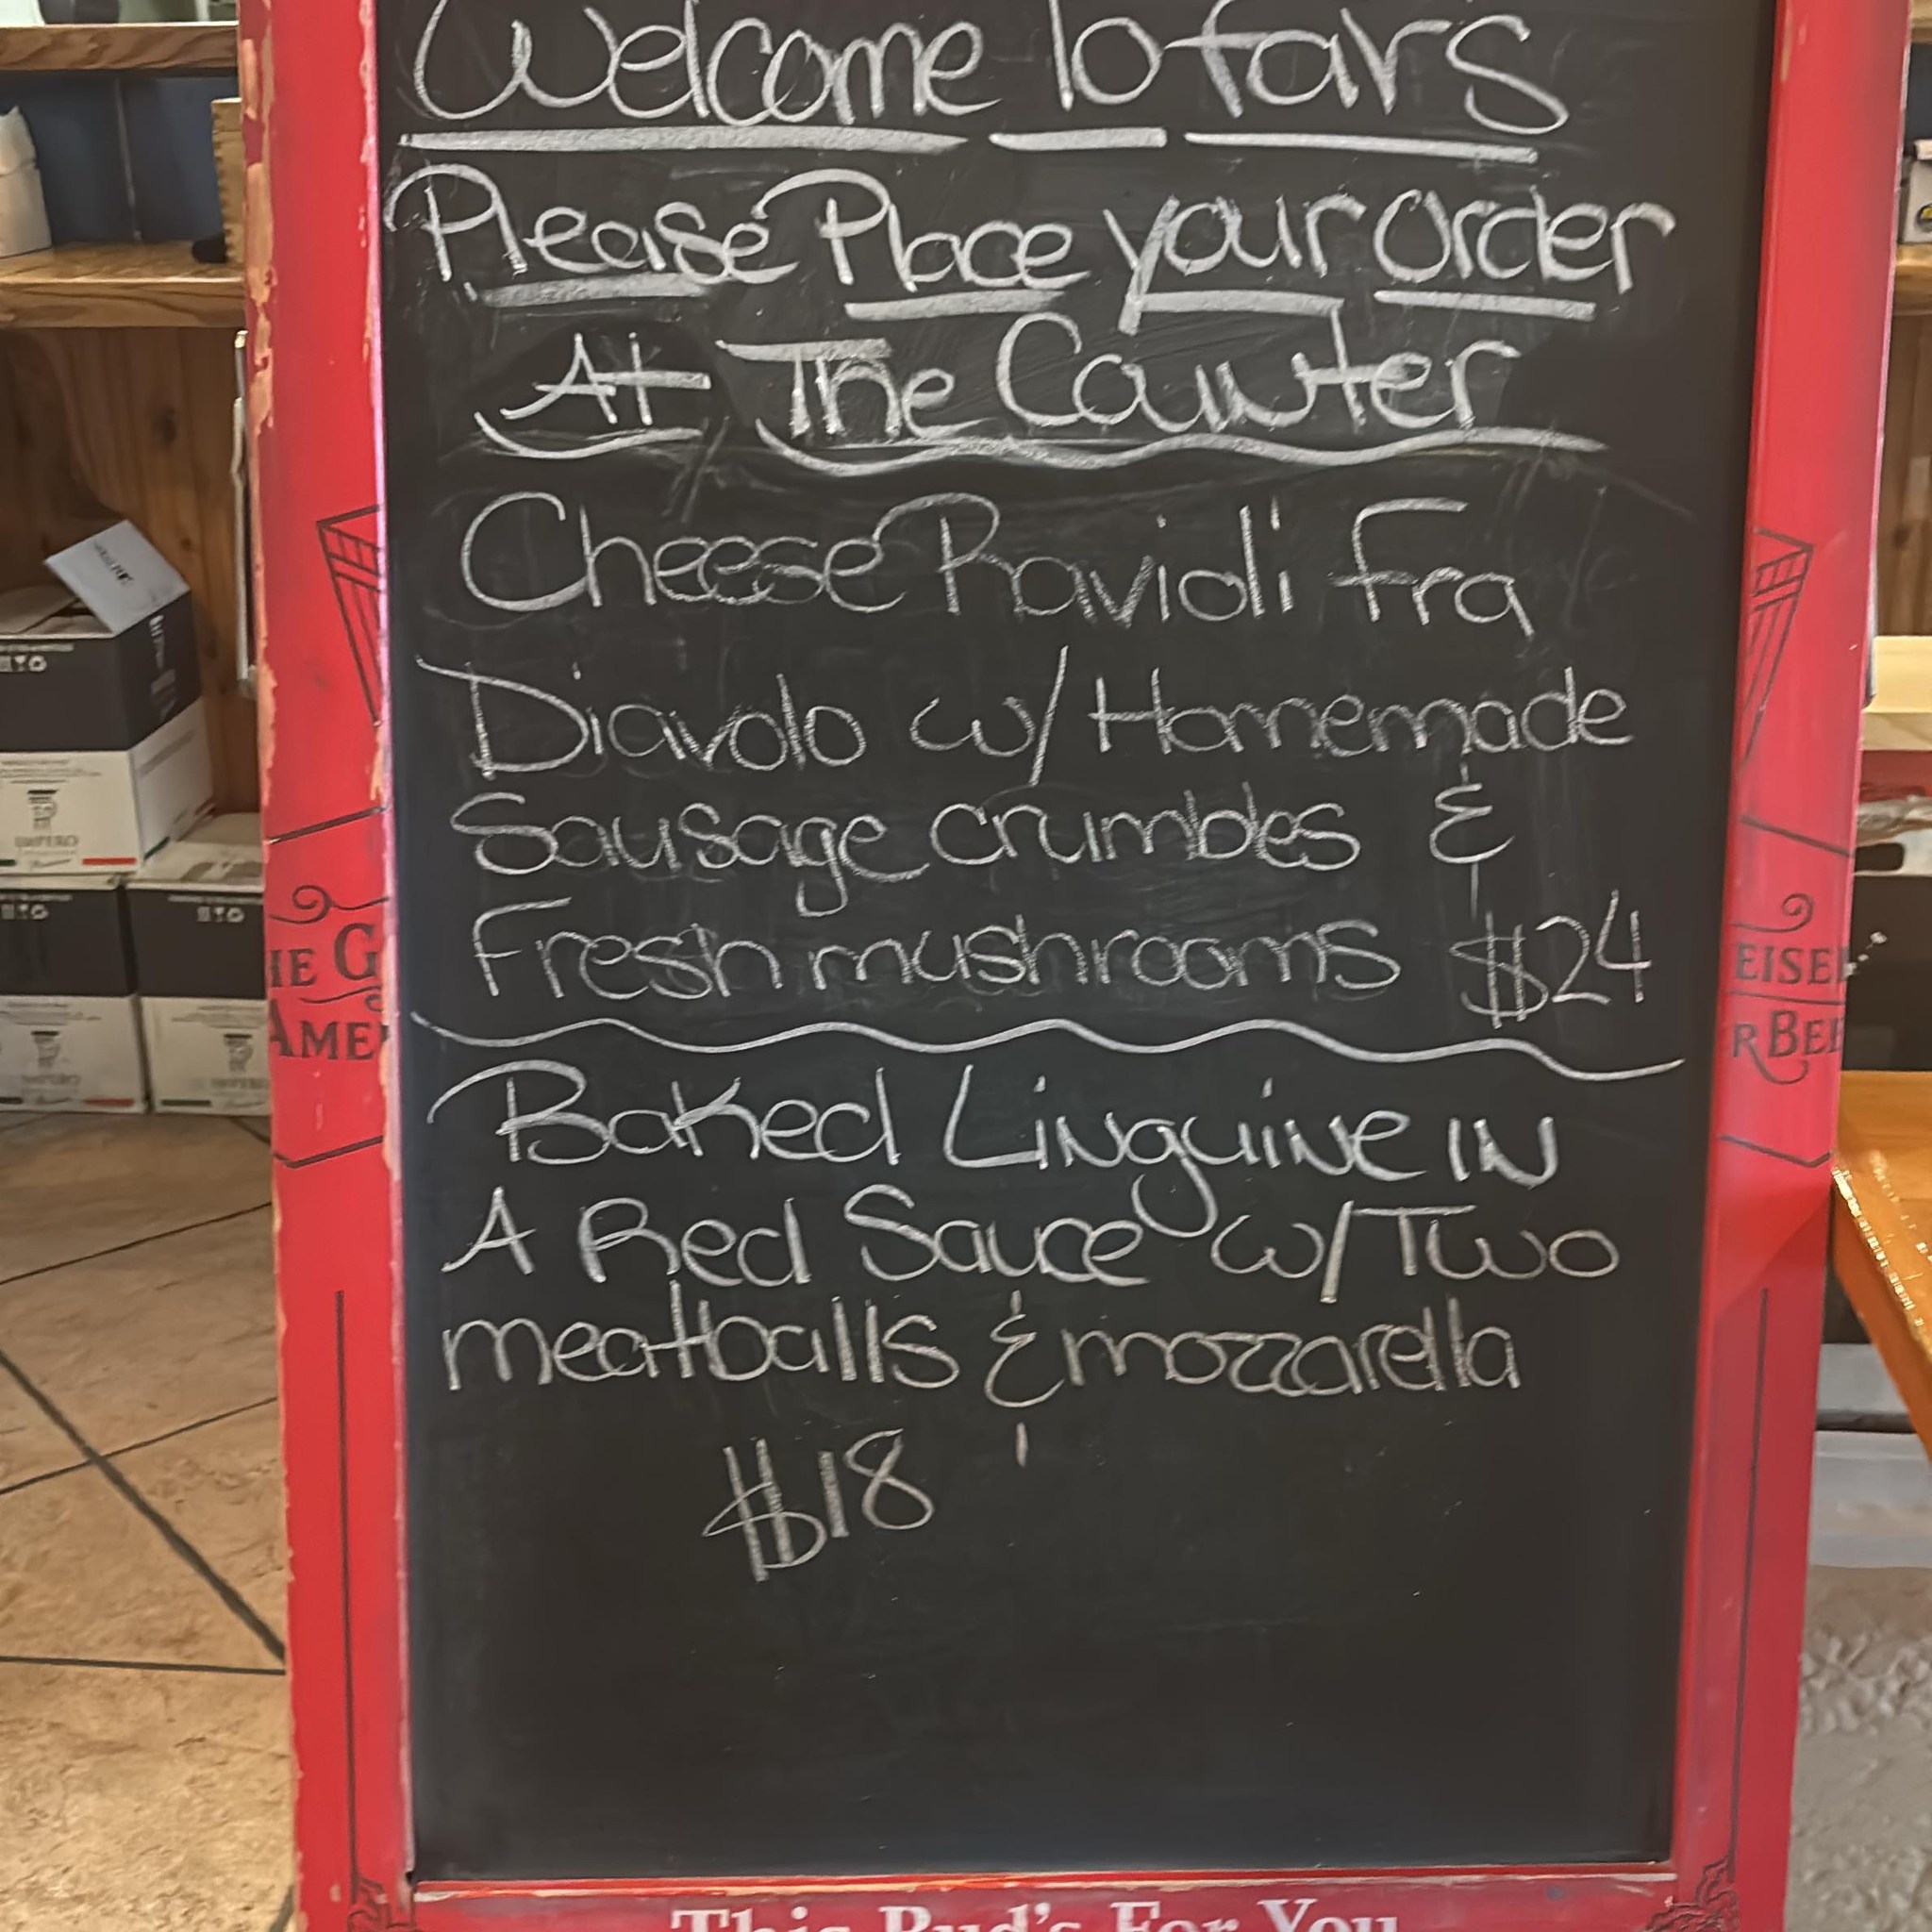 Welcome To favs
Please Place your Order
At The Counter
Cheese Ravioli Fra
Diavolo w/ Homemade
Sausage crumbles &
Fresh mushrooms $24
Baked Linguine IN
A Red Sauce w/Two
meatballs & mozzarella
$18
IE G
AME
EISE
R BEE
IMPERO
IMPERO
IMPERO
This Bud's For You